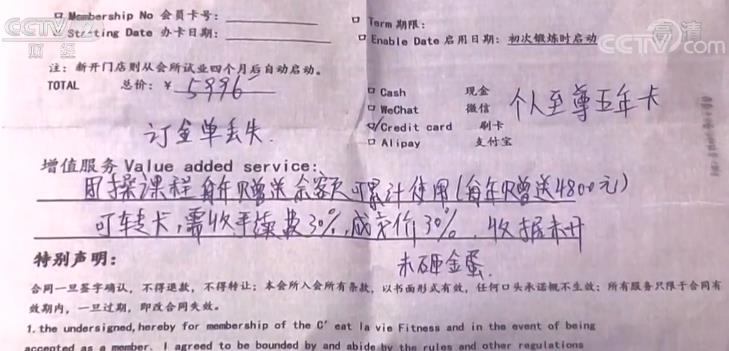 CCTV 2
财经
CCTV.com 高清
□ Membership No 会员卡号：
□ Starting Date 办卡日期：
□ Term 期限：
□ Enable Date 启用日期：初次锻炼时启动
注：新开门店则从会所试业四个月后自动启动。
TOTAL 总价：¥ 5996
□ Cash 现金
□ WeChat 微信
☑ Credit card 刷卡
□ Alipay 支付宝
个人至尊五年卡
订金单丢失.
增值服务 Value added service:
团操课程每年赠送余额可累计使用(每年赠送4800元)
可转卡,需收手续费30%,成交价30%. 收据未开
未砸金蛋.
特别声明：
合同一旦签字确认，不得退款，不得转让；本会所入会所有条款，以书面形式有效，任何口头承诺概不生效；所有服务只限于合同有
效期内，一旦过期，即改合同失效。
1. the undersigned, hereby for membership of the C' eat la vie Fitness and in the event of being
accepted as a member. I agreed to be bounded by and abide by the rules and other regulations